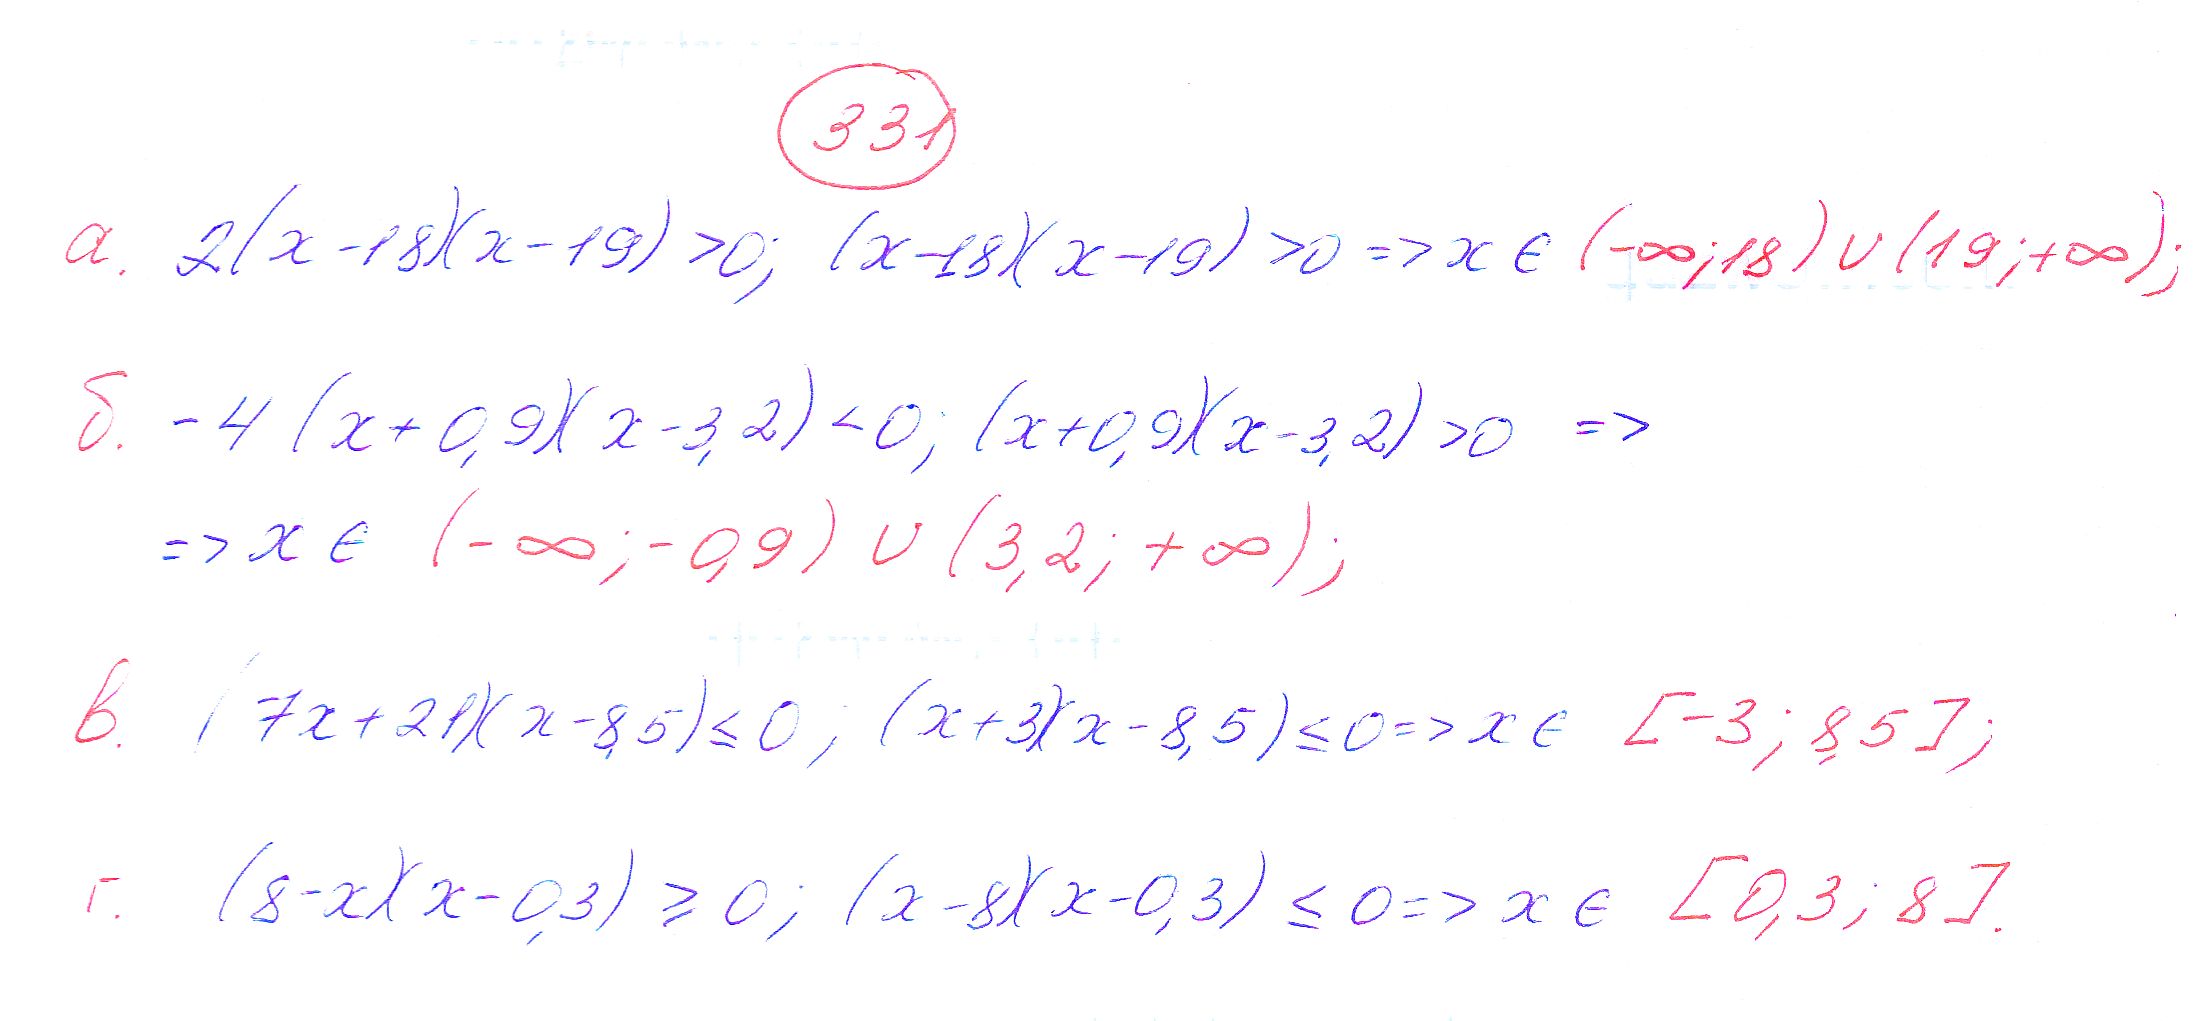 331
а. 2(x-18)(x-19)>0; (x-18)(x-19)>0 => x ∈ (-∞;18) ∪ (19;+∞);
б. -4 (x+0,9)(x-3,2)<0; (x+0,9)(x-3,2)>0 =>
=> x ∈ (-∞;-0,9) ∪ (3,2;+∞);
в. (7x+21)(x-8,5)≤0; (x+3)(x-8,5)≤0 => x ∈ [-3;8,5];
г. (8-x)(x-0,3)≥0; (x-8)(x-0,3)≤0 => x ∈ [0,3;8].